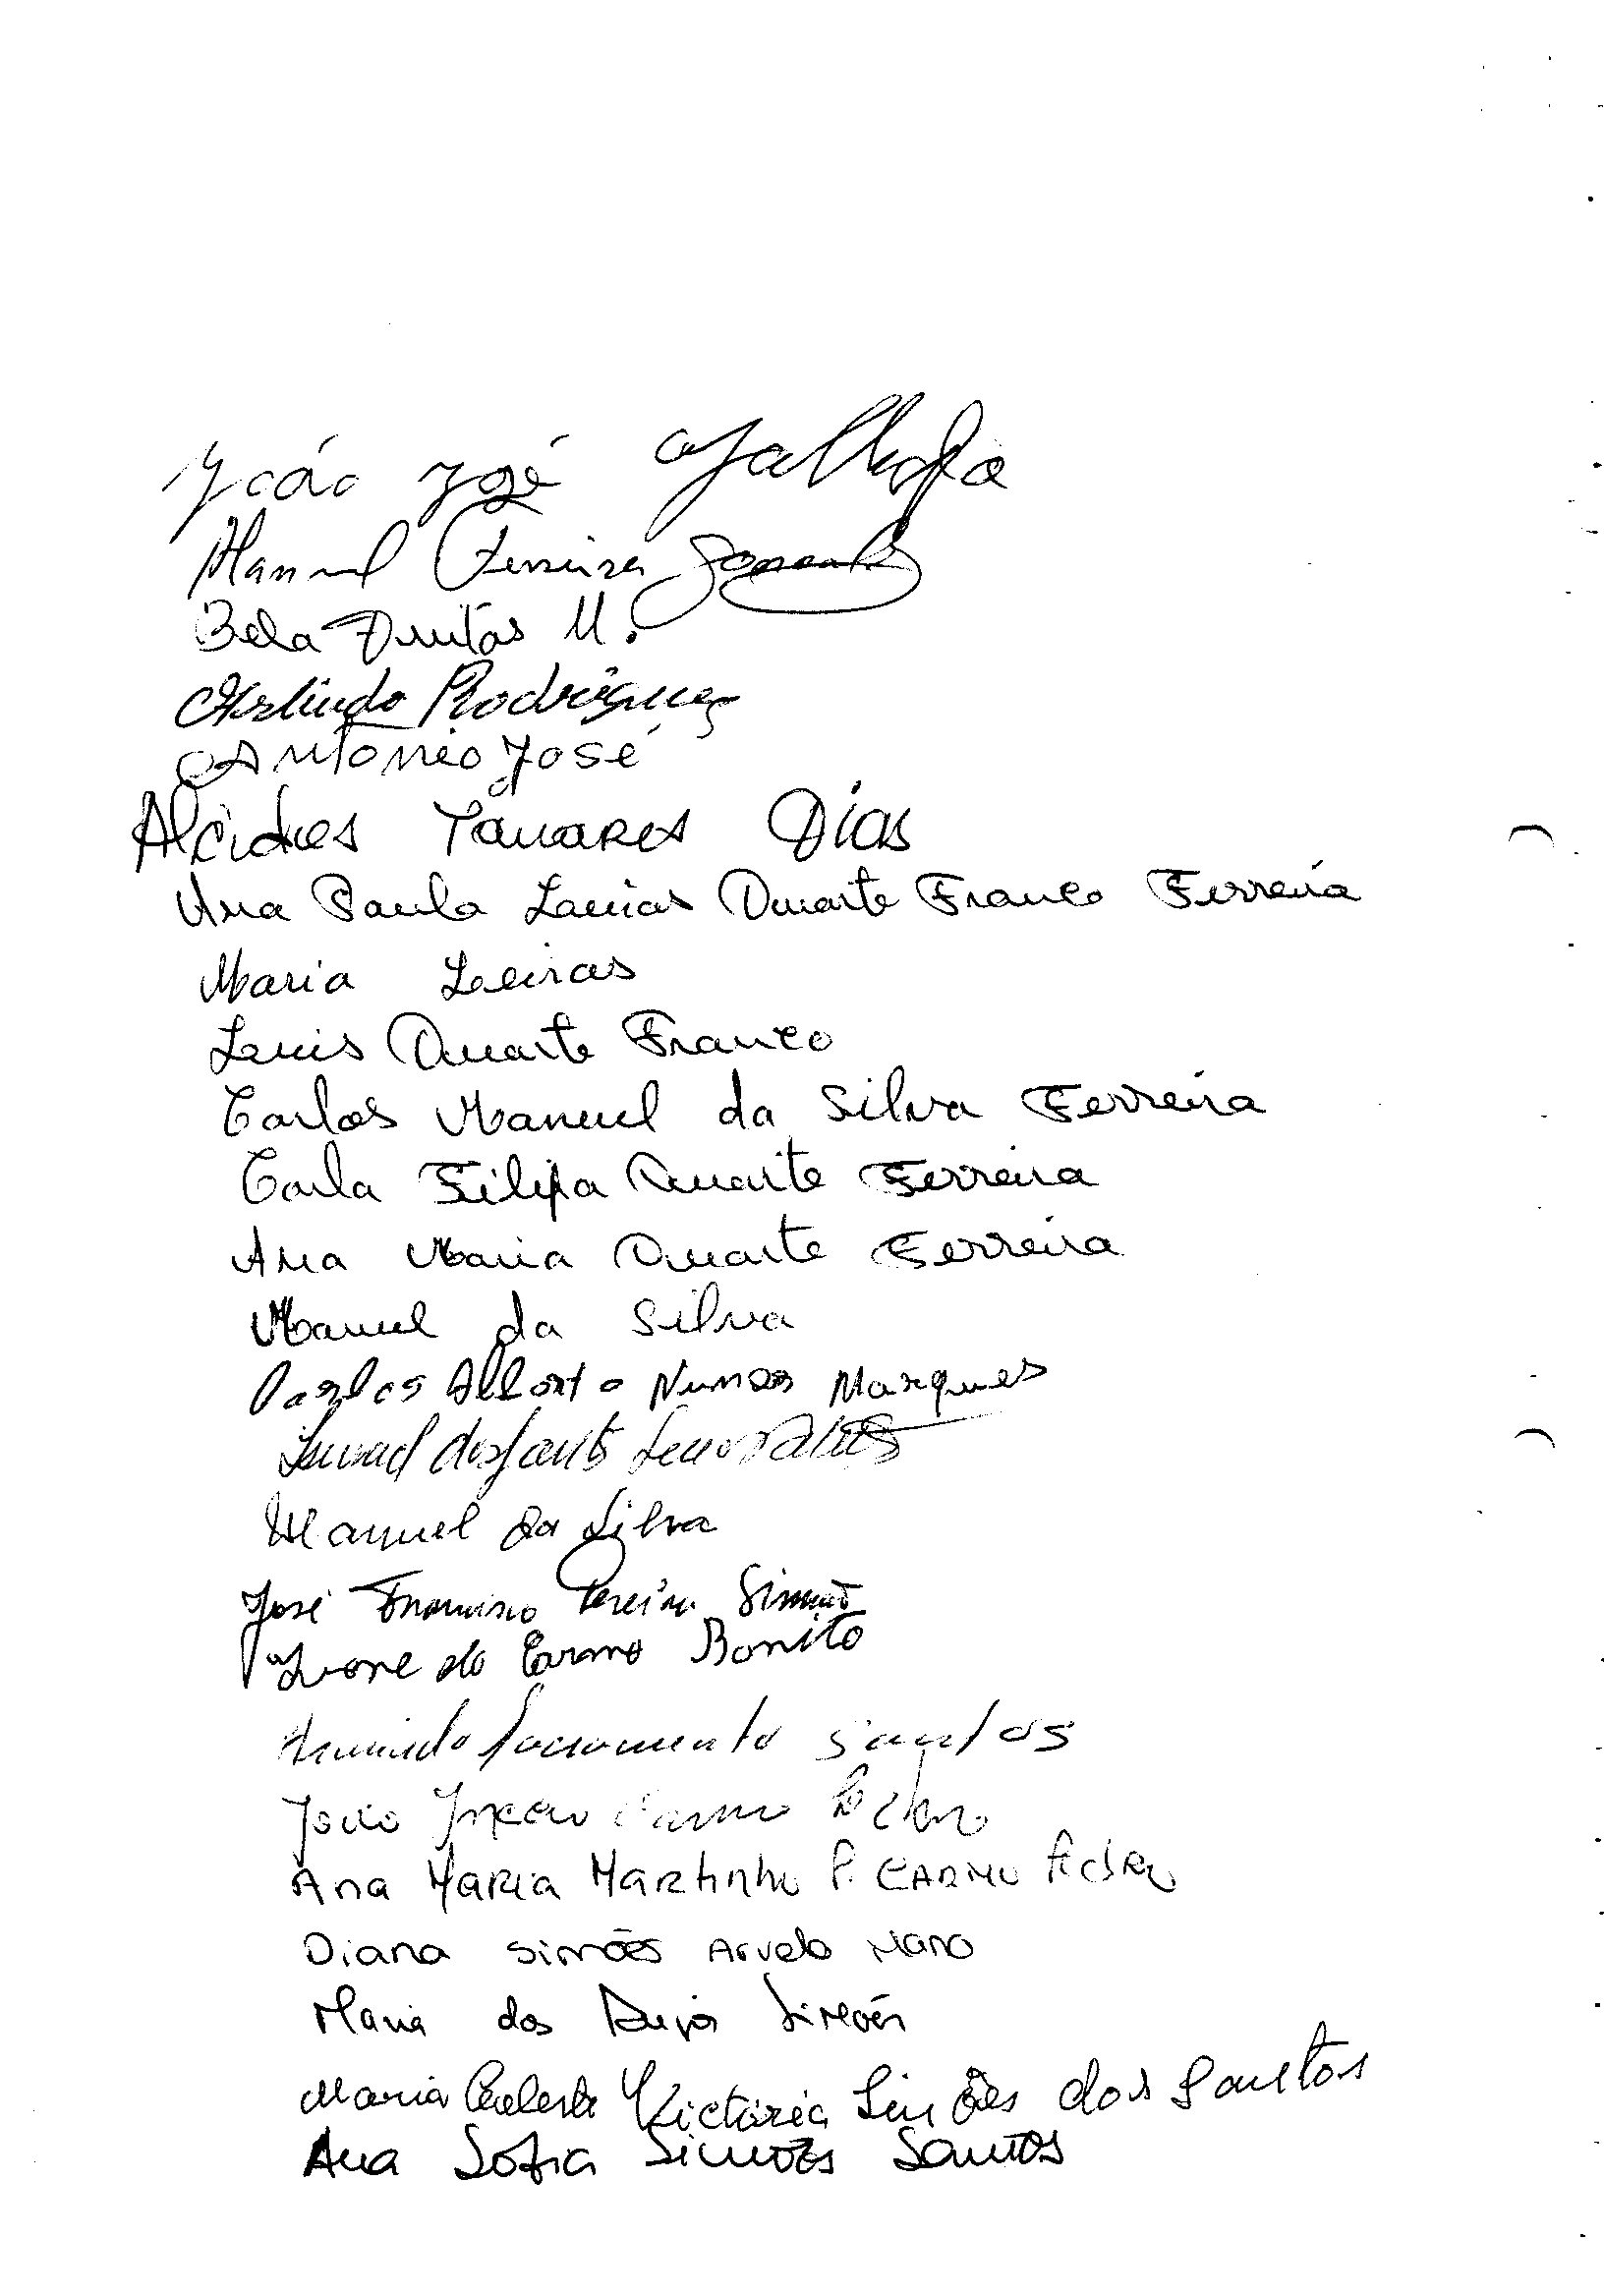 João José
Manuel Ferreira
Bela Freitas M.
Arlindo Rodrigues
António José
Alcides Tavares Dias
Ana Paula Duarte Franco Ferreira
Maria Leiras
Luis Duarte Franco
Carlos Manuel da Silva Ferreira
Carla Filipa Duarte Ferreira
Ana Maria Duarte Ferreira
Manuel da Silva
Carlos Alberto Nunes Marques
Manuel da Silva
José Francisco Pereira Simão
Ivone do Carmo Bonito
Armindo Sacramento Santos
João Carmo
Ana Maria Martinho P. Carmo
Diana Simões Arvelo Nano
Maria dos Simões
Maria Celeste Victória Simões dos Santos
Ana Sofia Simões Santos